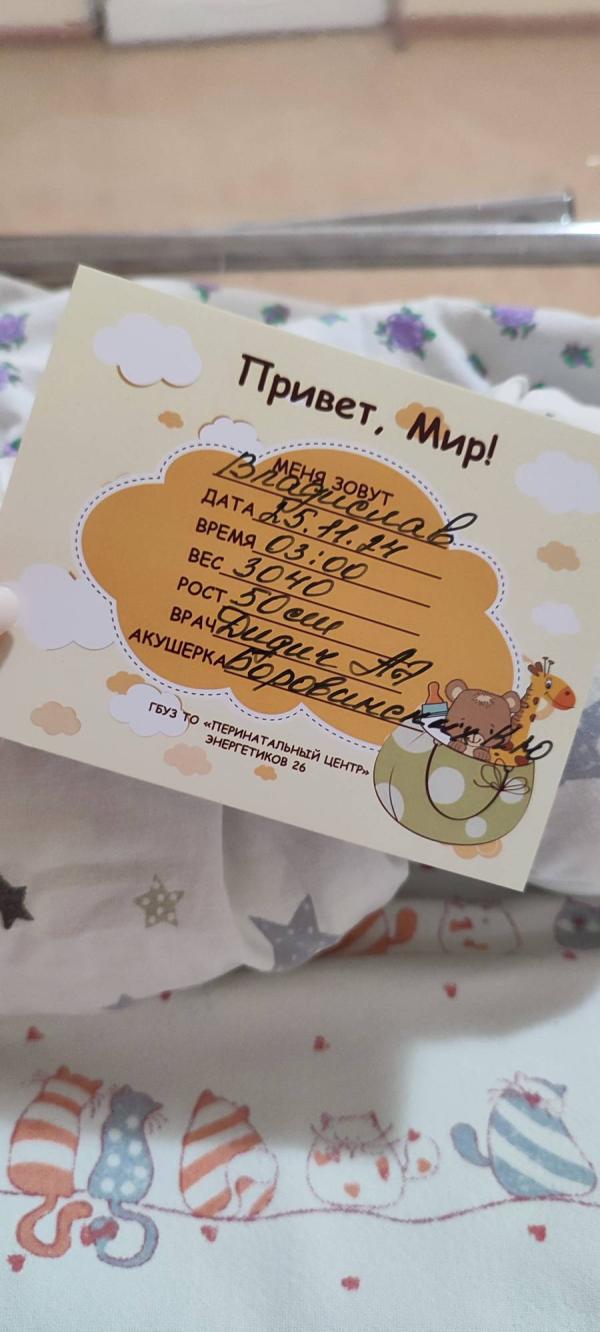 Привет, Мир!
МЕНЯ ЗОВУТ
Владислав
ДАТА 25.11.24
ВРЕМЯ 03:00
ВЕС 3040
РОСТ 50см
ВРАЧ Дидич
АКУШЕРКА
ГБУЗ ТО «ПЕРИНАТАЛЬНЫЙ ЦЕНТР»
ЭНЕРГЕТИКОВ 26